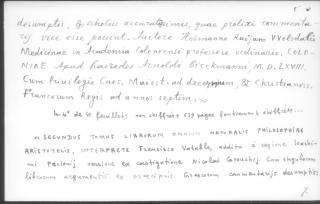 desumptis, & scholiis accuratissimis, quae prolixi commenta-
rij vice esse possint. Autore Hermanno Raijano Welsdalio
Medicinae in Academia Coloniensi professore ordinario. COLO-
NIAE Apud haeredes Arnoldi Birckmanni, M.D.LXVIII.
Cum Privilegio Caes. Maiest. ad decennium, & Christianiss.
Francorum Regis ad annos septem.>>
In 4º de 10 feuillets non chiffrés 639 pages
« SECUNDUS TOMUS LIBRORUM OMNIUM NATURALIS PHILOSOPHIAE
ARISTOTELIS, INTERPRETE Francisco Vatablo, addita è regione Ioachi-
mi Perionij versione ex castigatione Nicolai Grouchij. Cum singulorum
librorum argumentis ex praecipuis Graecorum commentarijs desumptis